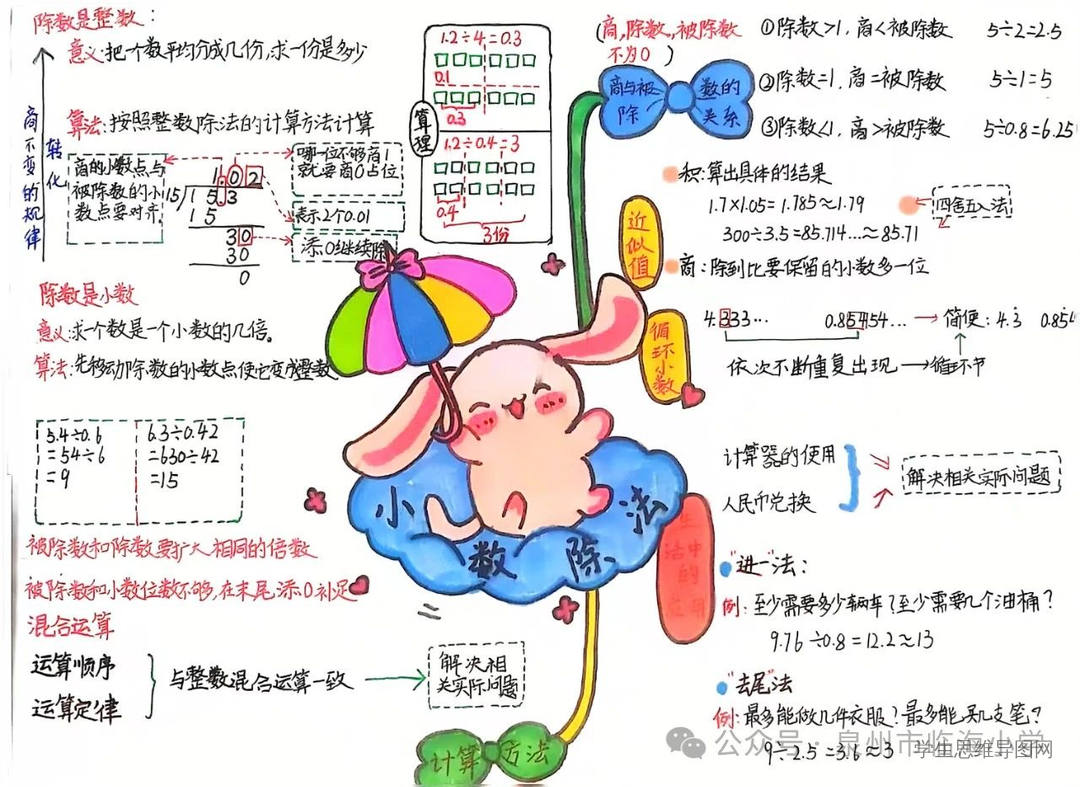 除数是整数：
意义：把一个数平均分成几份，求一份是多少
商不变的规律
转化
算法：按照整数除法的计算方法计算
商的小数点与
被除数的小
数点要对齐
哪一位不够商1
就要商0占位
表示2个0.01
添0继续除
1.02
15）15.3
15
30
30
0
算理
1.2÷4=0.3
0.1
0.3
1.2÷0.4=3
0.4
3份
除数是小数
意义：求一个数是一个小数的几倍。
算法：先移动除数的小数点使它变成整数
5.4÷0.6
=54÷6
=9
6.3÷0.42
=630÷42
=15
被除数和除数要扩大相同的倍数
被除数和小数位数不够，在末尾添0补足
混合运算
运算顺序
运算定律
与整数混合运算一致
解决相
关实际问题
小数除法
计算方法
商与被除数的关系
（商，除数，被除数
不为0）
①除数>1，商<被除数 5÷2=2.5
②除数=1，商=被除数 5÷1=5
③除数<1，商>被除数 5÷0.8=6.25
近似值
积：算出具体的结果
1.7×1.05=1.785≈1.79
四舍五入法
300÷3.5=85.714…≈85.71
商：除到比要保留的小数多一位
循环小数
4.333… 0.85454… 简便：4.3̇ 0.854̇
依次不断重复出现 循环节
生活中的应用
计算器的使用
人民币兑换
解决相关实际问题
"进一"法：
例：至少需要多少辆车？至少需要几个油桶？
9.76÷0.8=12.2≈13
"去尾"法
例：最多能做几件衣服？最多能买几支笔？
9÷2.5=3.6≈3
公众号·泉州市临海小学
学生思维导图网